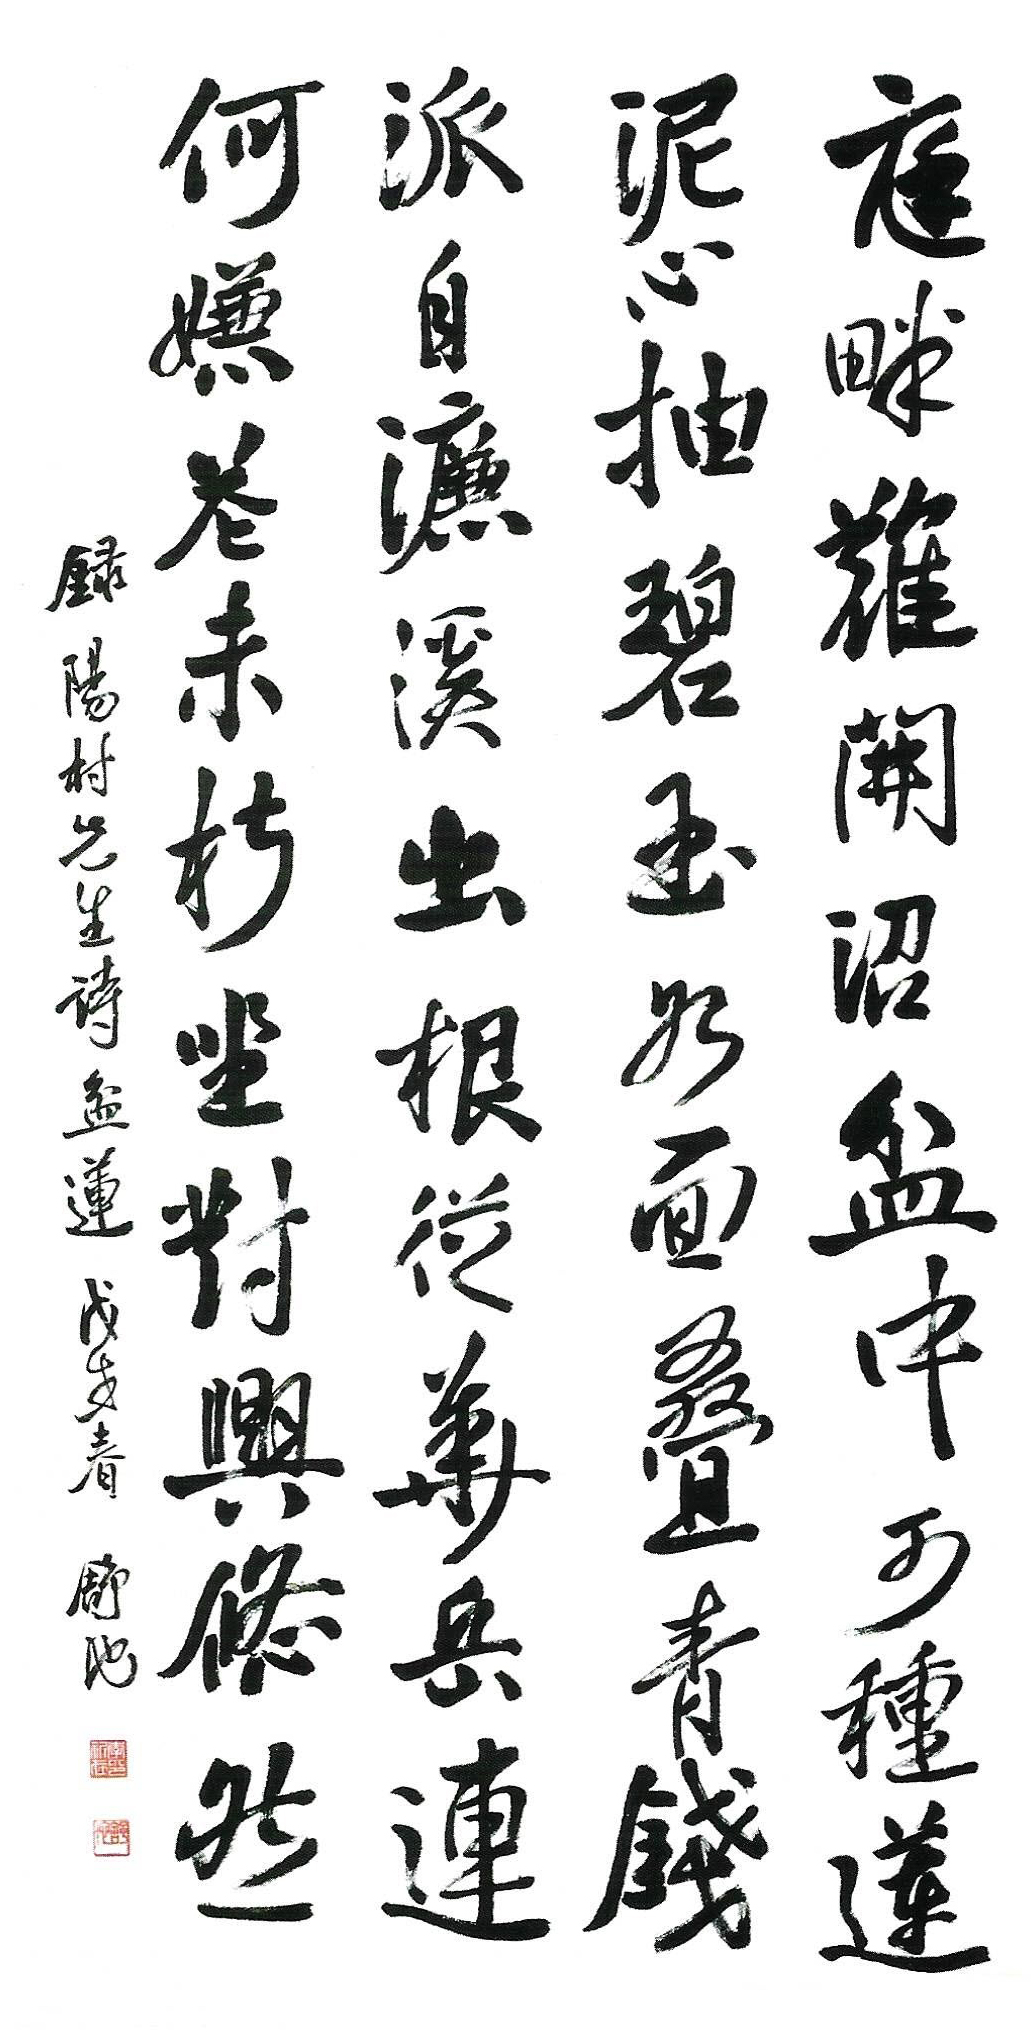 庭畔難開沼盆中可種蓮
泥心抽碧玉水面疊青錢
派自濂溪出根從華岳連
何嫌巷未朽坐對興悠然
錄陽村先生詩盆蓮 戊戌春